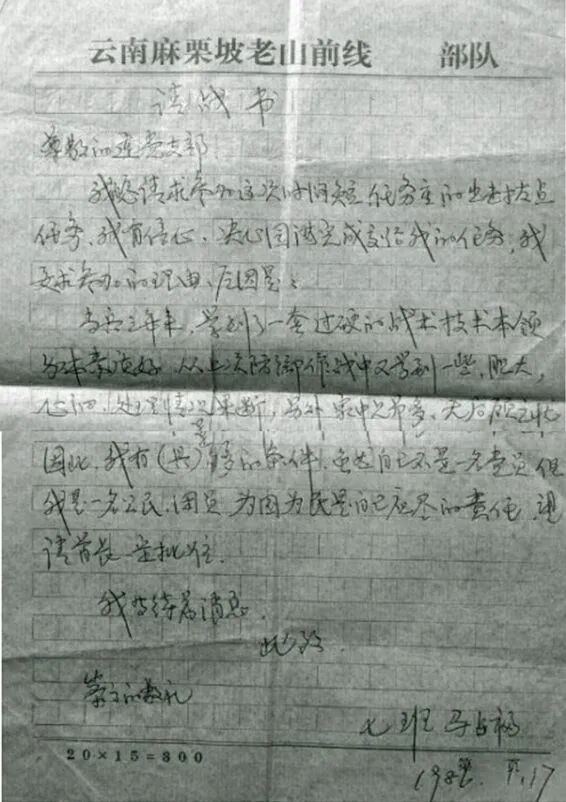 云南麻栗坡老山前线 部队
请战书
尊敬的连党支部
我恳请求参加这次时间短任务重的出击拔点
任务，我有信心，决心圆满完成交给我的任务，我
要求参加的理由、原因是：
当兵三年来，学到了一套过硬的战术技术本领
身体素质好，从上次防御作战中又学到一些，胆大，
心细，处理情况果断，另外家中兄弟多，无后顾之忧
因此，我有（具）备的条件，虽然自己不是一名党员但
我是一名公民，团员，为国为民是自己应尽的责任，望
请首长一定批准
我等待着消息。
此致
崇高的敬礼
七班 马占福
198 .17
20×15=300
第 页